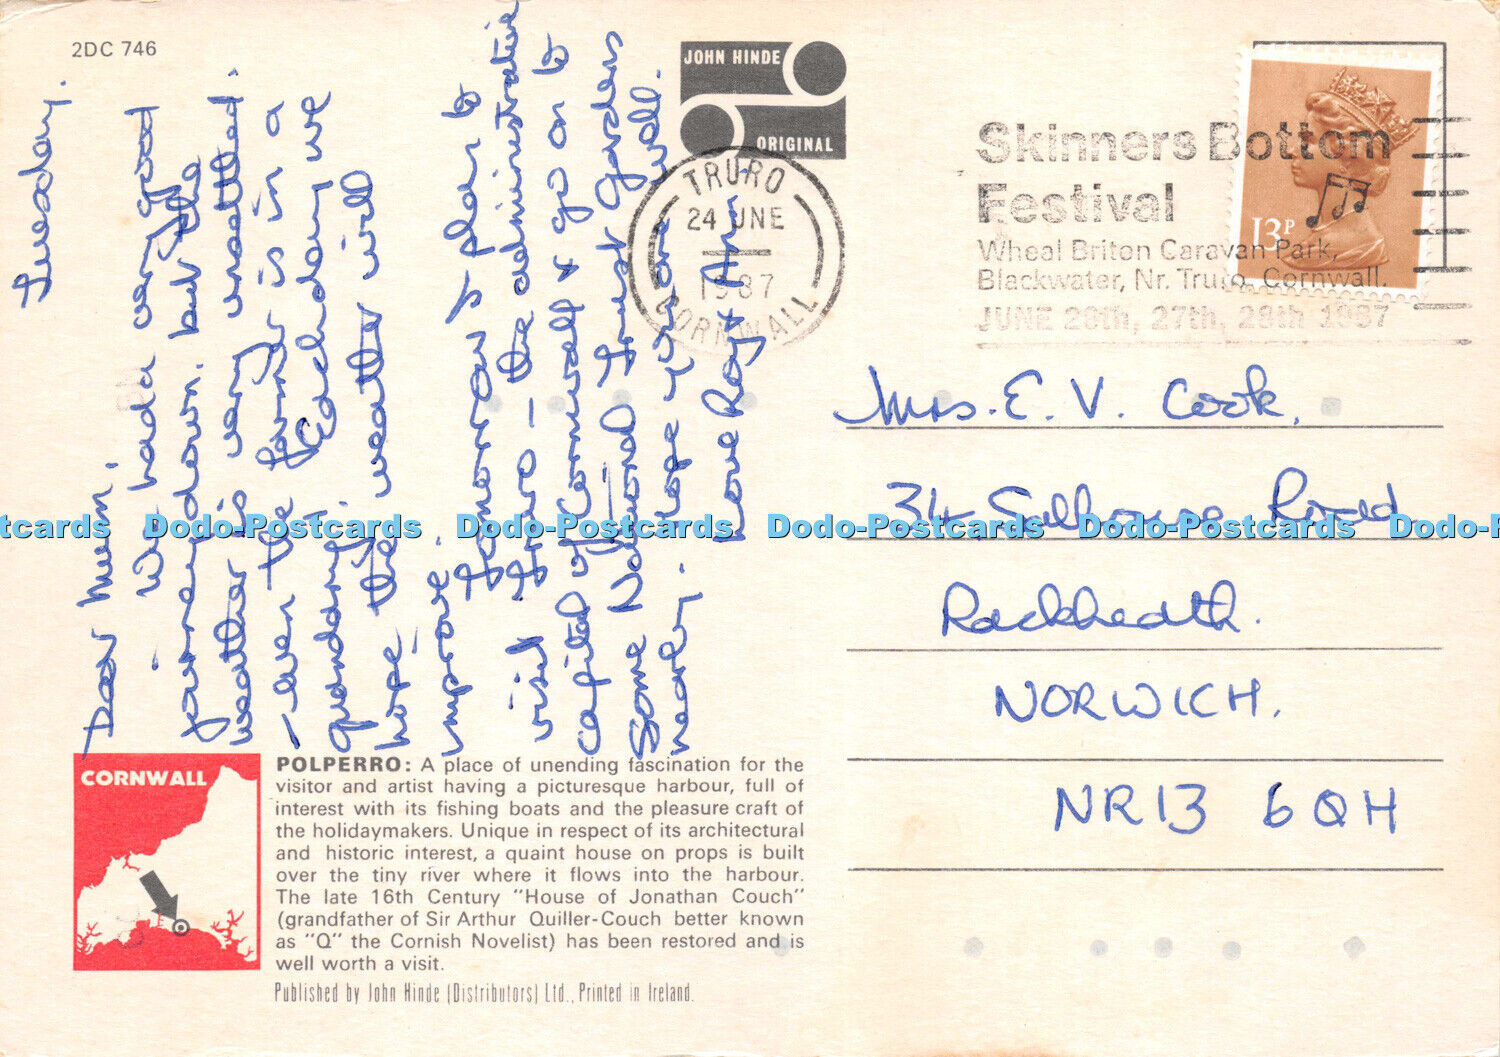 2DC 746
JOHN HINDE
ORIGINAL
TRURO
24 JNE
1987
CORNWALL
Skinners Bottom
Festival
Wheal Briton Caravan Park,
Blackwater, Nr. Truro, Cornwall.
JUNE 26th, 27th, 28th 1987
13P
Tuesday.
Dear Mum.
We had a very good
journey down. but the
weather is very unsettled.
- even the farmer is in a
quandary! Each day we
hope the weather will
improve.
Tomorrow we plan to
visit Truro - the administrative
capital of Cornwall & go on to
some National Trust gardens
nearby. Hope you are well.
Love Roy & Ann
Mrs. E. V. Cook,
34 Salhouse Road
Rackheath.
NORWICH.
NR13 6QH
Dodo-Postcards Dodo-Postcards Dodo-Postcards Dodo-Postcards Dodo-Postcards
CORNWALL
POLPERRO: A place of unending fascination for the
visitor and artist having a picturesque harbour, full of
interest with its fishing boats and the pleasure craft of
the holidaymakers. Unique in respect of its architectural
and historic interest, a quaint house on props is built
over the tiny river where it flows into the harbour.
The late 16th Century "House of Jonathan Couch"
(grandfather of Sir Arthur Quiller-Couch better known
as "Q" the Cornish Novelist) has been restored and is
well worth a visit.
Published by John Hinde (Distributors) Ltd., Printed in Ireland.